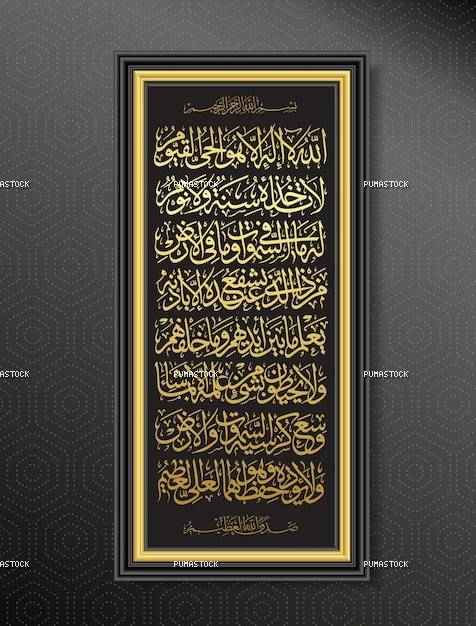 بسم الله الرحمن الرحيم
الله لا إله إلا هو الحي القيوم
لا تأخذه سنة ولا نوم
له ما في السموات وما في الأرض
من ذا الذي يشفع عنده إلا بإذنه
يعلم ما بين أيديهم وما خلفهم
ولا يحيطون بشيء من علمه إلا بما شاء
وسع كرسيه السموات والأرض
ولا يؤوده حفظهما وهو العلي العظيم
صدق الله العظيم
PUMASTOCK
PUMASTOCK
PUMASTOCK
PUMASTOCK
PUMASTOCK
PUMASTOCK